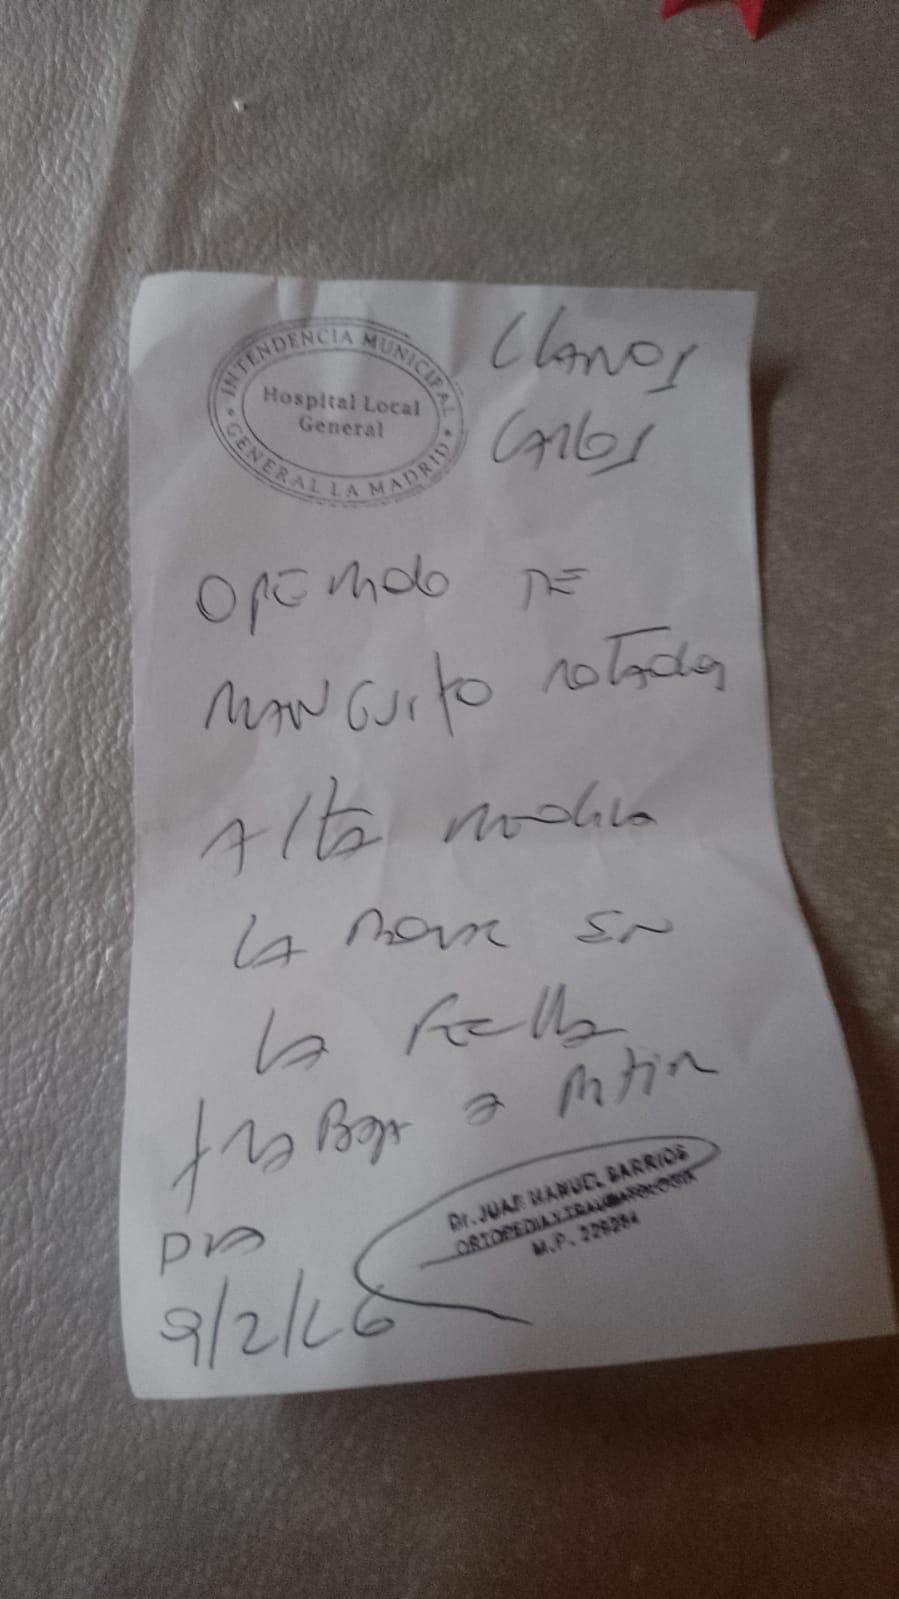 INTENDENCIA MUNICIPAL
Hospital Local
General
GENERAL LA MADRID
LLANOS
CARLOS
OPERADO DE
MANGUITO rotador
Alta medica
LA
EN
la Fecha
trabaja a Partir
DIA
9/2/26
Dr. JUAN MANUEL BARRIOS
ORTOPEDIA Y TRAUMATOLOGIA
M.P. 226284